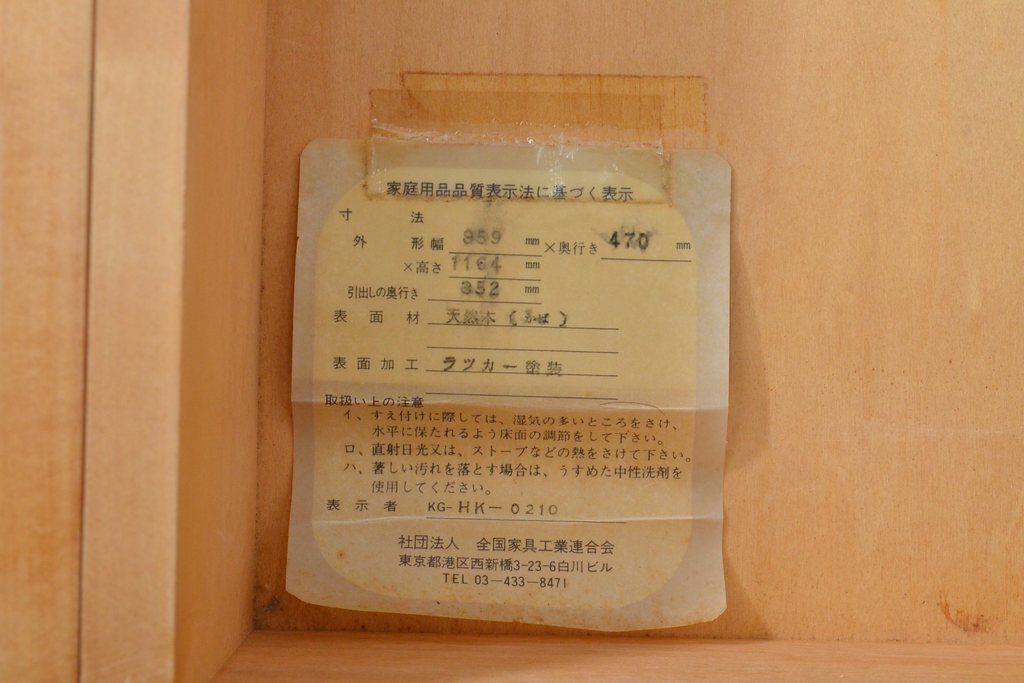 家庭用品品質表示法に基づく表示
寸法
外形幅 859 mm ×奥行き 470 mm
×高さ 1164 mm
引出しの奥行き 352 mm
表面材 天然木(かば)
表面加工 ラツカー塗装
取扱い上の注意
イ、すえ付けに際しては、湿気の多いところをさけ、
水平に保たれるよう床面の調節をして下さい。
ロ、直射日光又は、ストーブなどの熱をさけて下さい。
ハ、著しい汚れを落とす場合は、うすめた中性洗剤を
使用してください。
表示者 KG-HK-0210
社団法人 全国家具工業連合会
東京都港区西新橋3-23-6白川ビル
TEL 03-433-8471